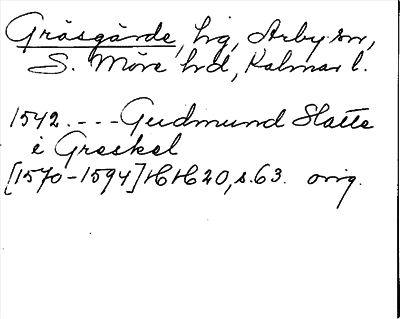 Gräsgärde, hg, Arby sn,
S. Möre hd, Kalmar l.
1542. --- Gudmund Slatte
i Greskel
[1570-1594] HH 20, s. 63. orig.